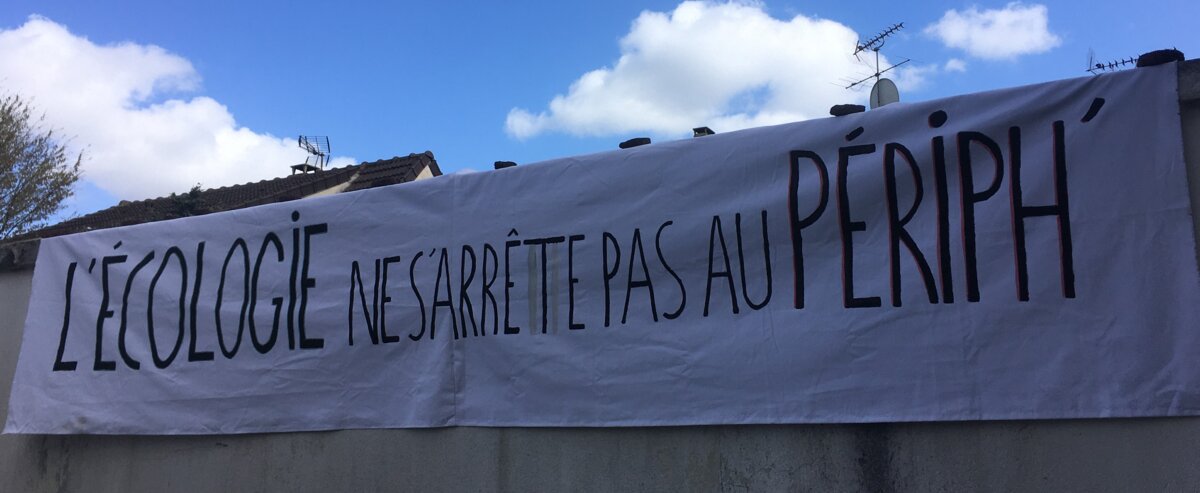 L'ÉCOLOGIE NE S'ARRÊTE PAS AU PÉRIPH'